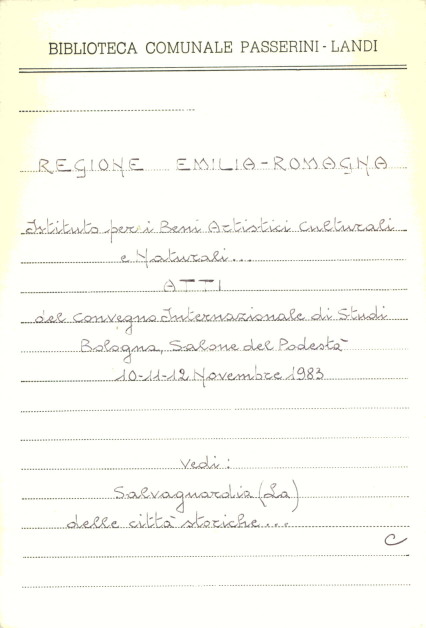 BIBLIOTECA COMUNALE PASSERINI - LANDI
REGIONE EMILIA-ROMAGNA
Istituto per i Beni Artistici Culturali
e Naturali...
ATTI
del Convegno Internazionale di Studi
Bologna, Salone del Podestà
10-11-12 Novembre 1983
Vedi:
Salvaguardia (La)
delle città storiche...
C